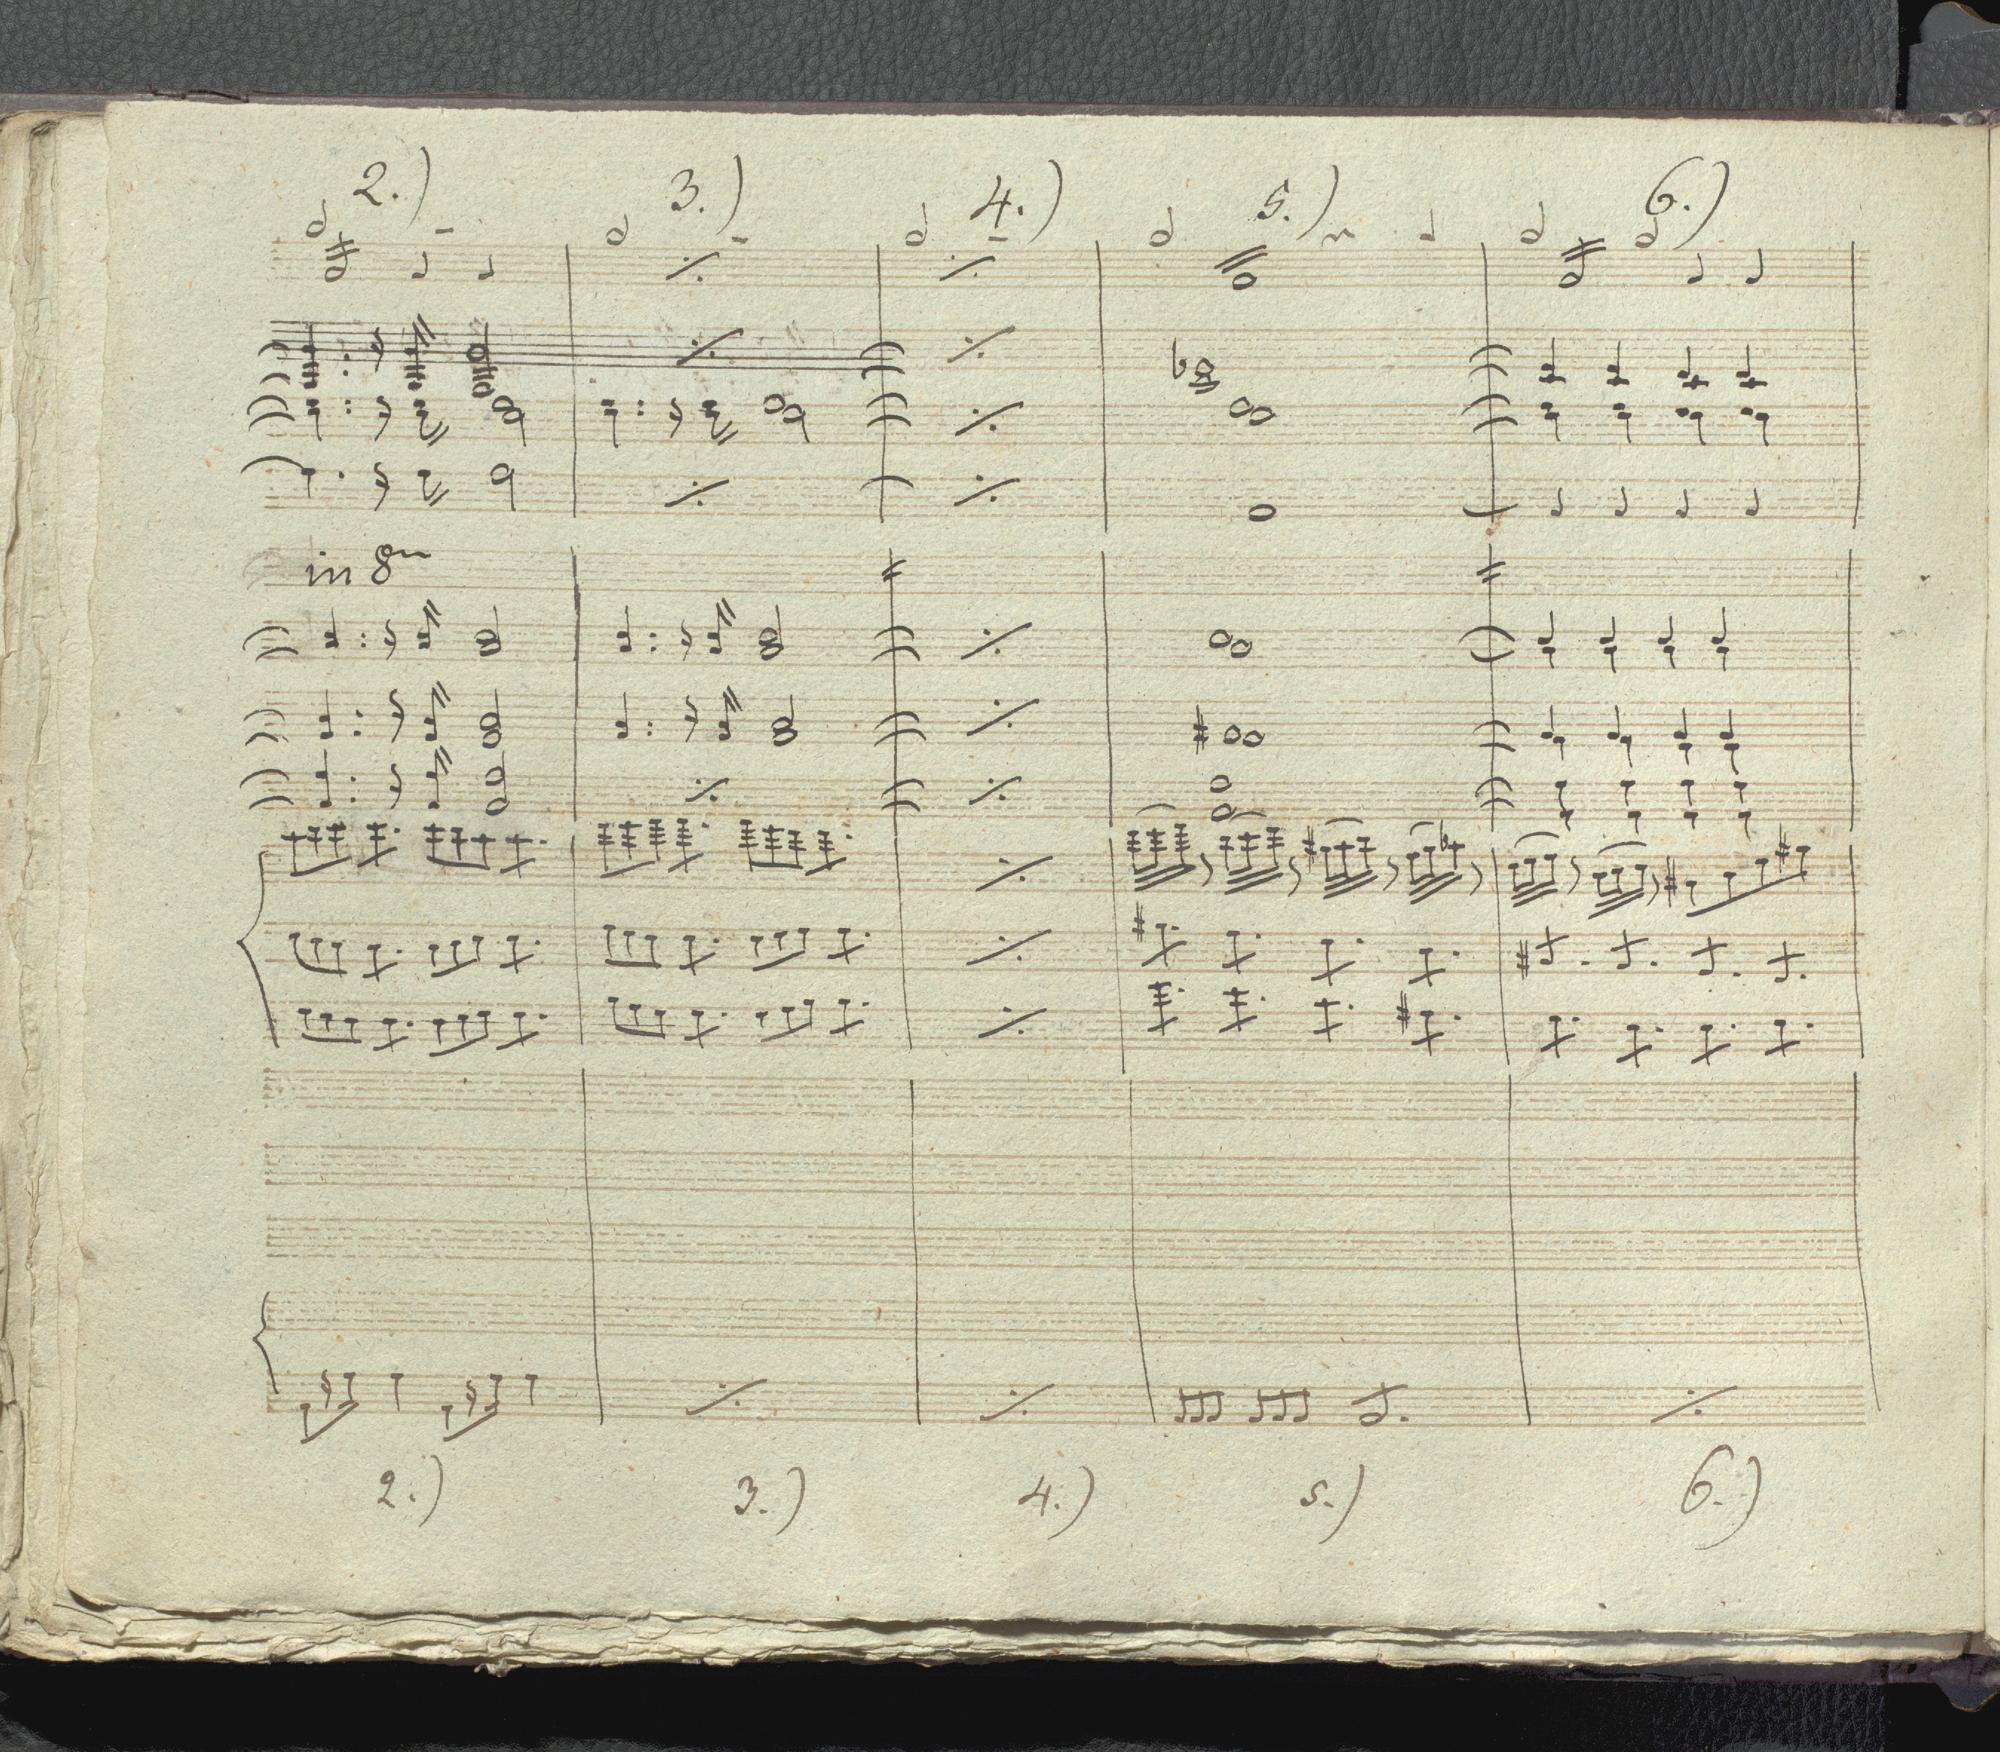 2.) 3.) 4.) 5.) 6.)
in 8
2.) 3.) 4.) 5.) 6.)